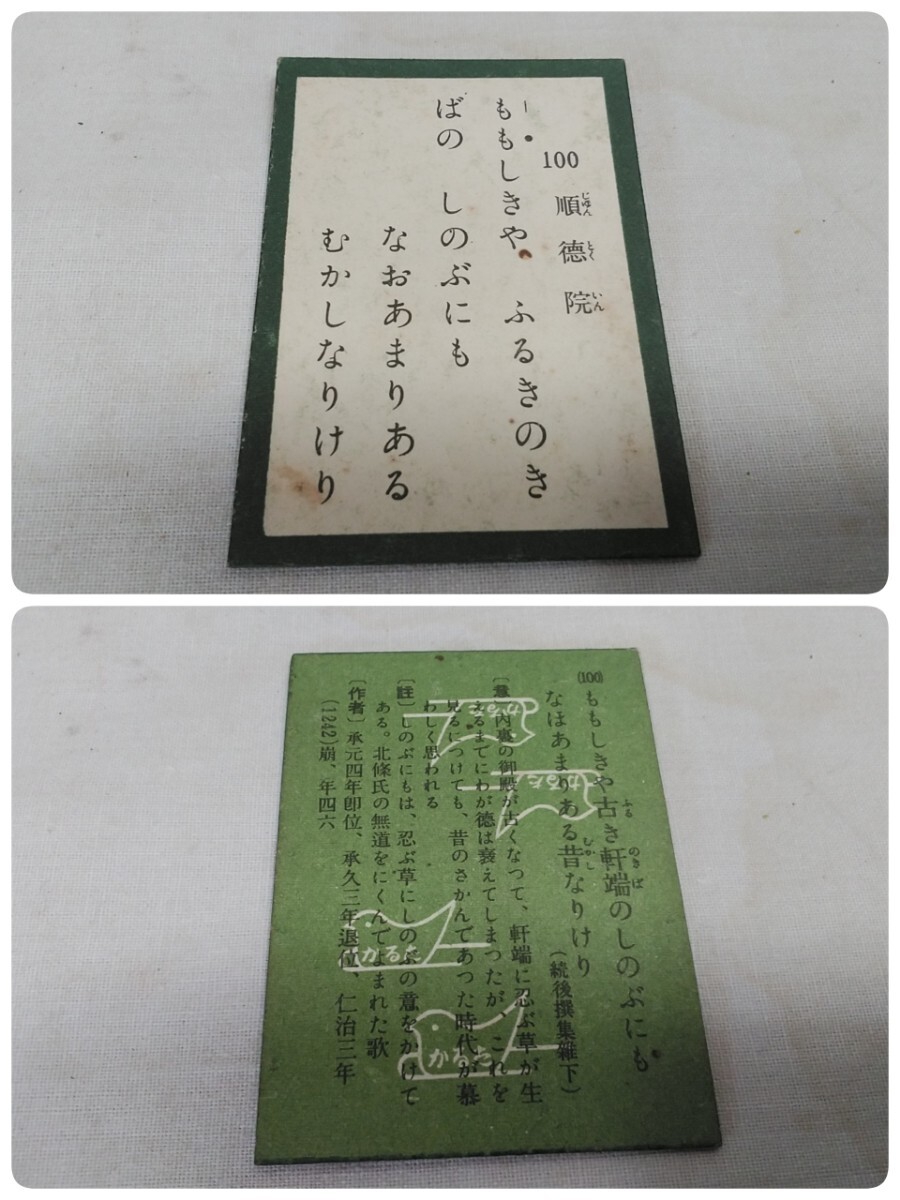 100 順德院
じゅん とく いん
ももしきや ふるきのき
ばの しのぶにも
なおあまりある
むかしなりけり
(100)
ももしきや古き軒端のしのぶにも
ふる のきば
なほあまりある昔なりけり
むかし
(続後撰集雜下)
〔意〕内裏の御殿が古くなつて、軒端に忍ぶ草が生
えるまでにわが徳は衰えてしまつたが、これを
見るにつけても、昔のさかんであつた時代が慕
わしく思われる
〔註〕しのぶにもは、忍ぶ草にしのぶの意をかけて
ある。北條氏の無道をにくんでよまれた歌
〔作者〕承元四年卽位、承久三年退位、仁治三年
(1242)崩、年四六
かるた
かるた
かるた
かるた